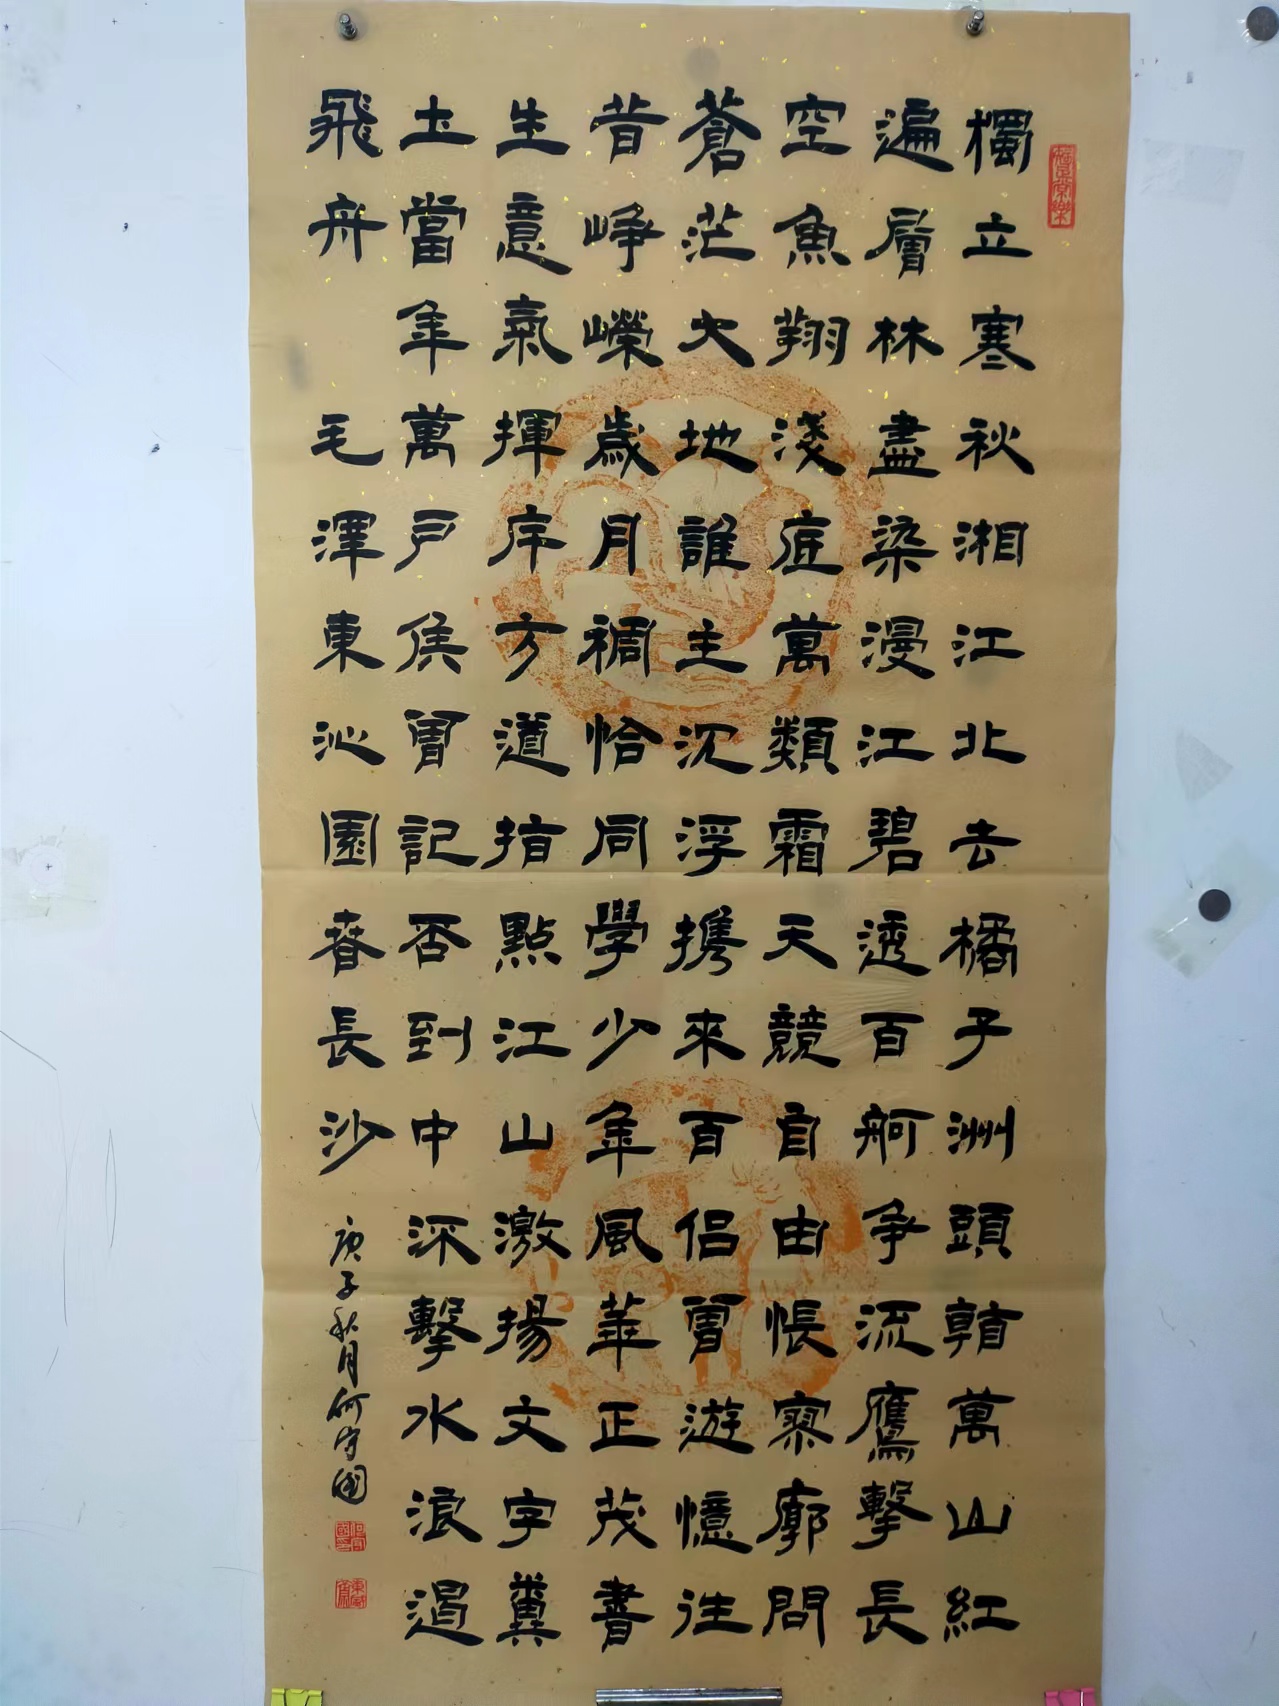 獨立寒秋湘江北去橘子洲頭看萬山紅
遍層林盡染漫江碧透百舸争流鷹擊長
空魚翔淺底萬類霜天競自由悵寥廓問
蒼茫大地誰主沉浮携來百侣曾遊憶往
昔崢嶸歲月稠恰同學少年風華正茂書
生意氣揮斥方遒指點江山激揚文字糞
土當年萬户侯曾記否到中深擊水浪遏
飛舟 毛澤東沁園春長沙 庚子秋月何守國